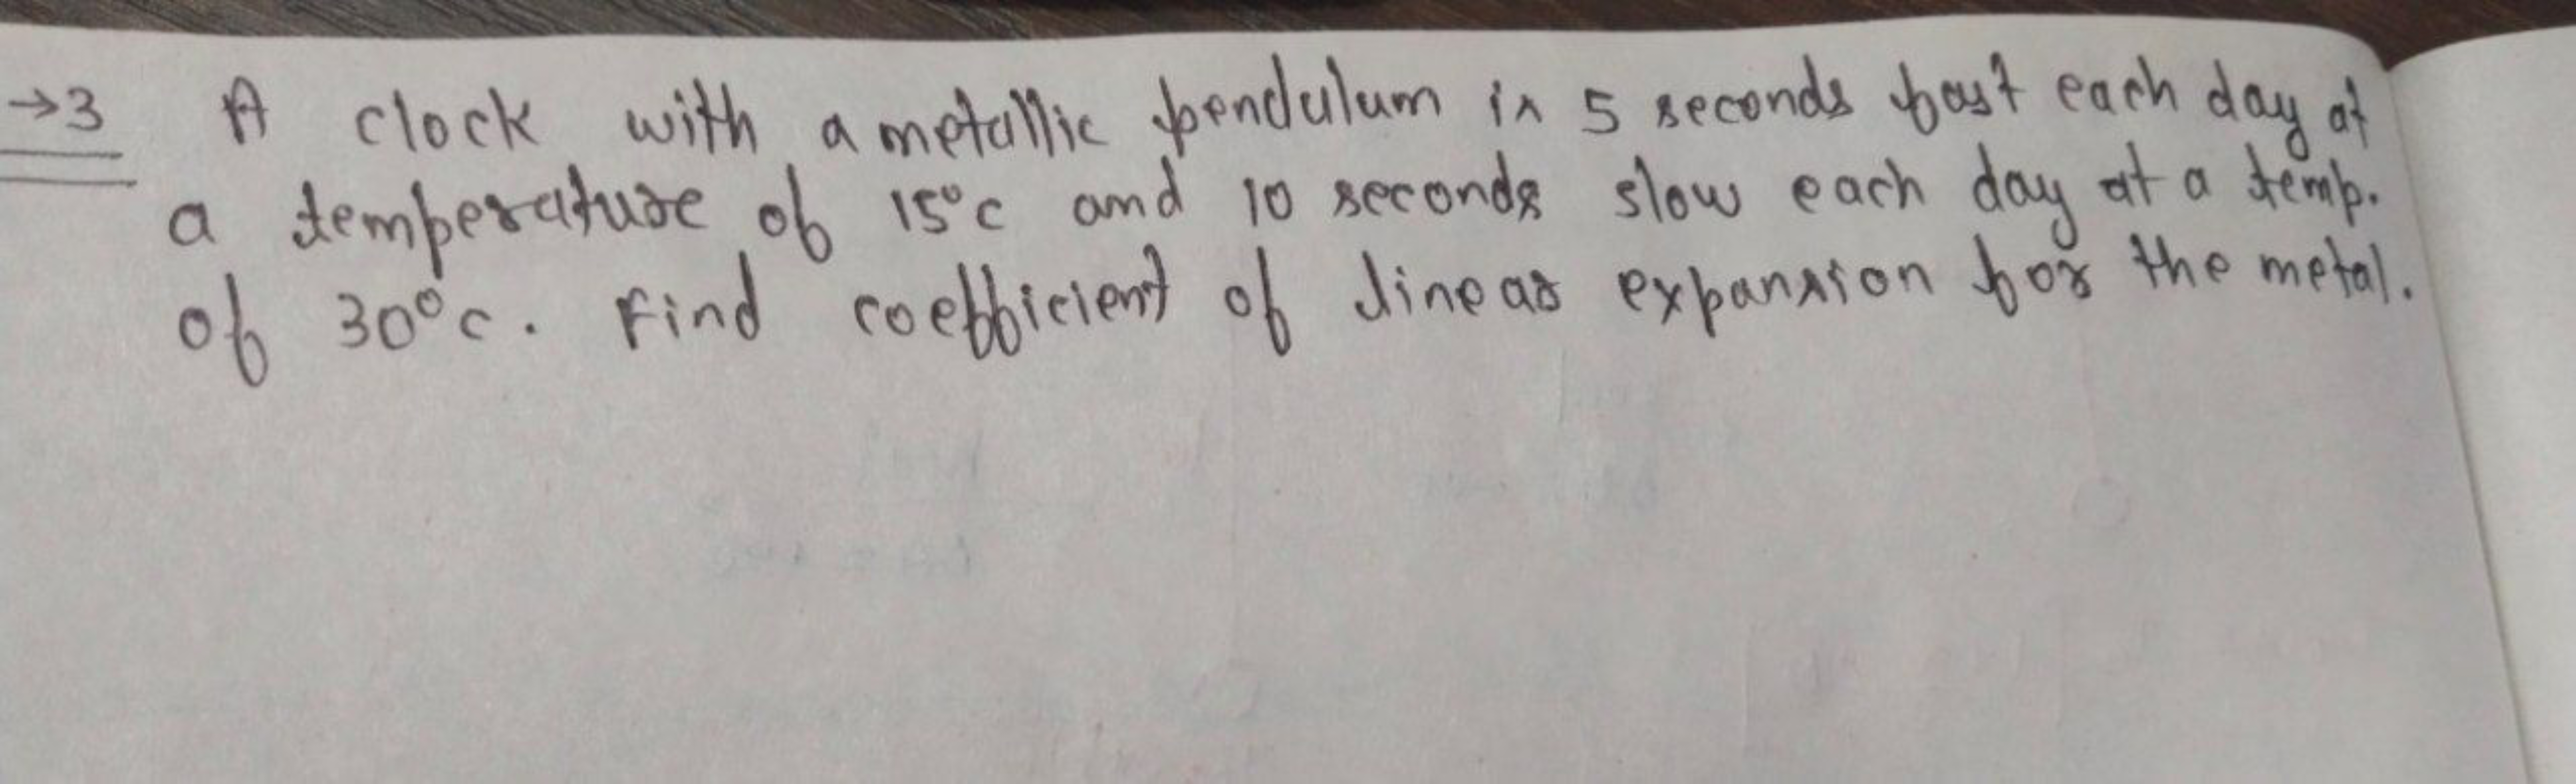 →3 A clock with a metallic pendulum is 5 seconds fast each day at
a temperature of 15°C and 10 seconds slow each day at a temp.
of 30°C. Find coefficient of linear expansion for the metal.